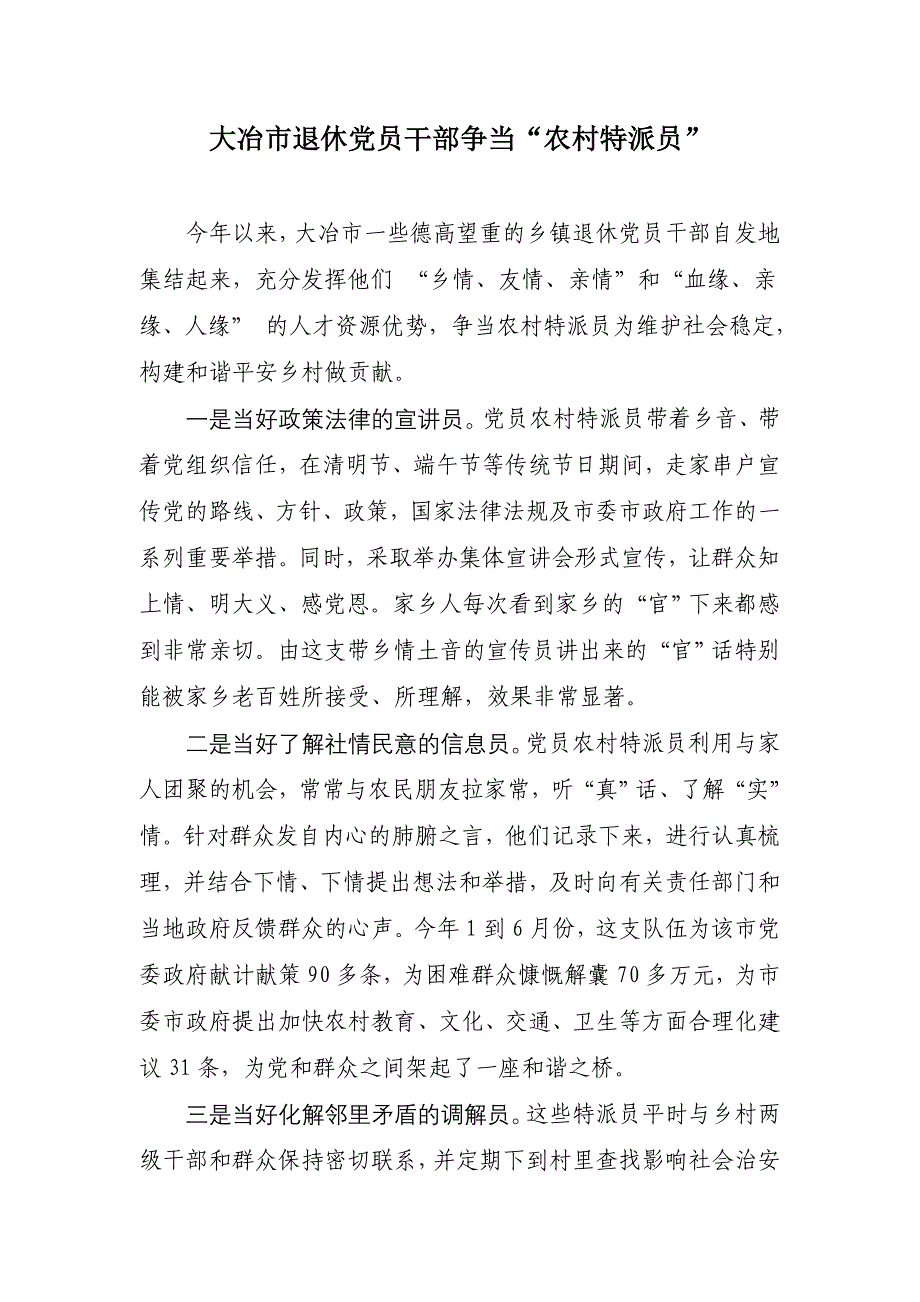 大冶市退休党员干部争当“农村特派员”
今年以来，大冶市一些德高望重的乡镇退休党员干部自发地
集结起来，充分发挥他们 “乡情、友情、亲情”和“血缘、亲
缘、人缘” 的人才资源优势，争当农村特派员为维护社会稳定，
构建和谐平安乡村做贡献。
一是当好政策法律的宣讲员。党员农村特派员带着乡音、带
着党组织信任，在清明节、端午节等传统节日期间，走家串户宣
传党的路线、方针、政策，国家法律法规及市委市政府工作的一
系列重要举措。同时，采取举办集体宣讲会形式宣传，让群众知
上情、明大义、感党恩。家乡人每次看到家乡的“官”下来都感
到非常亲切。由这支带乡情土音的宣传员讲出来的“官”话特别
能被家乡老百姓所接受、所理解，效果非常显著。
二是当好了解社情民意的信息员。党员农村特派员利用与家
人团聚的机会，常常与农民朋友拉家常，听“真”话、了解“实”
情。针对群众发自内心的肺腑之言，他们记录下来，进行认真梳
理，并结合下情、下情提出想法和举措，及时向有关责任部门和
当地政府反馈群众的心声。今年 1 到 6 月份，这支队伍为该市党
委政府献计献策 90 多条，为困难群众慷慨解囊 70 多万元，为市
委市政府提出加快农村教育、文化、交通、卫生等方面合理化建
议 31 条，为党和群众之间架起了一座和谐之桥。
三是当好化解邻里矛盾的调解员。这些特派员平时与乡村两
级干部和群众保持密切联系，并定期下到村里查找影响社会治安